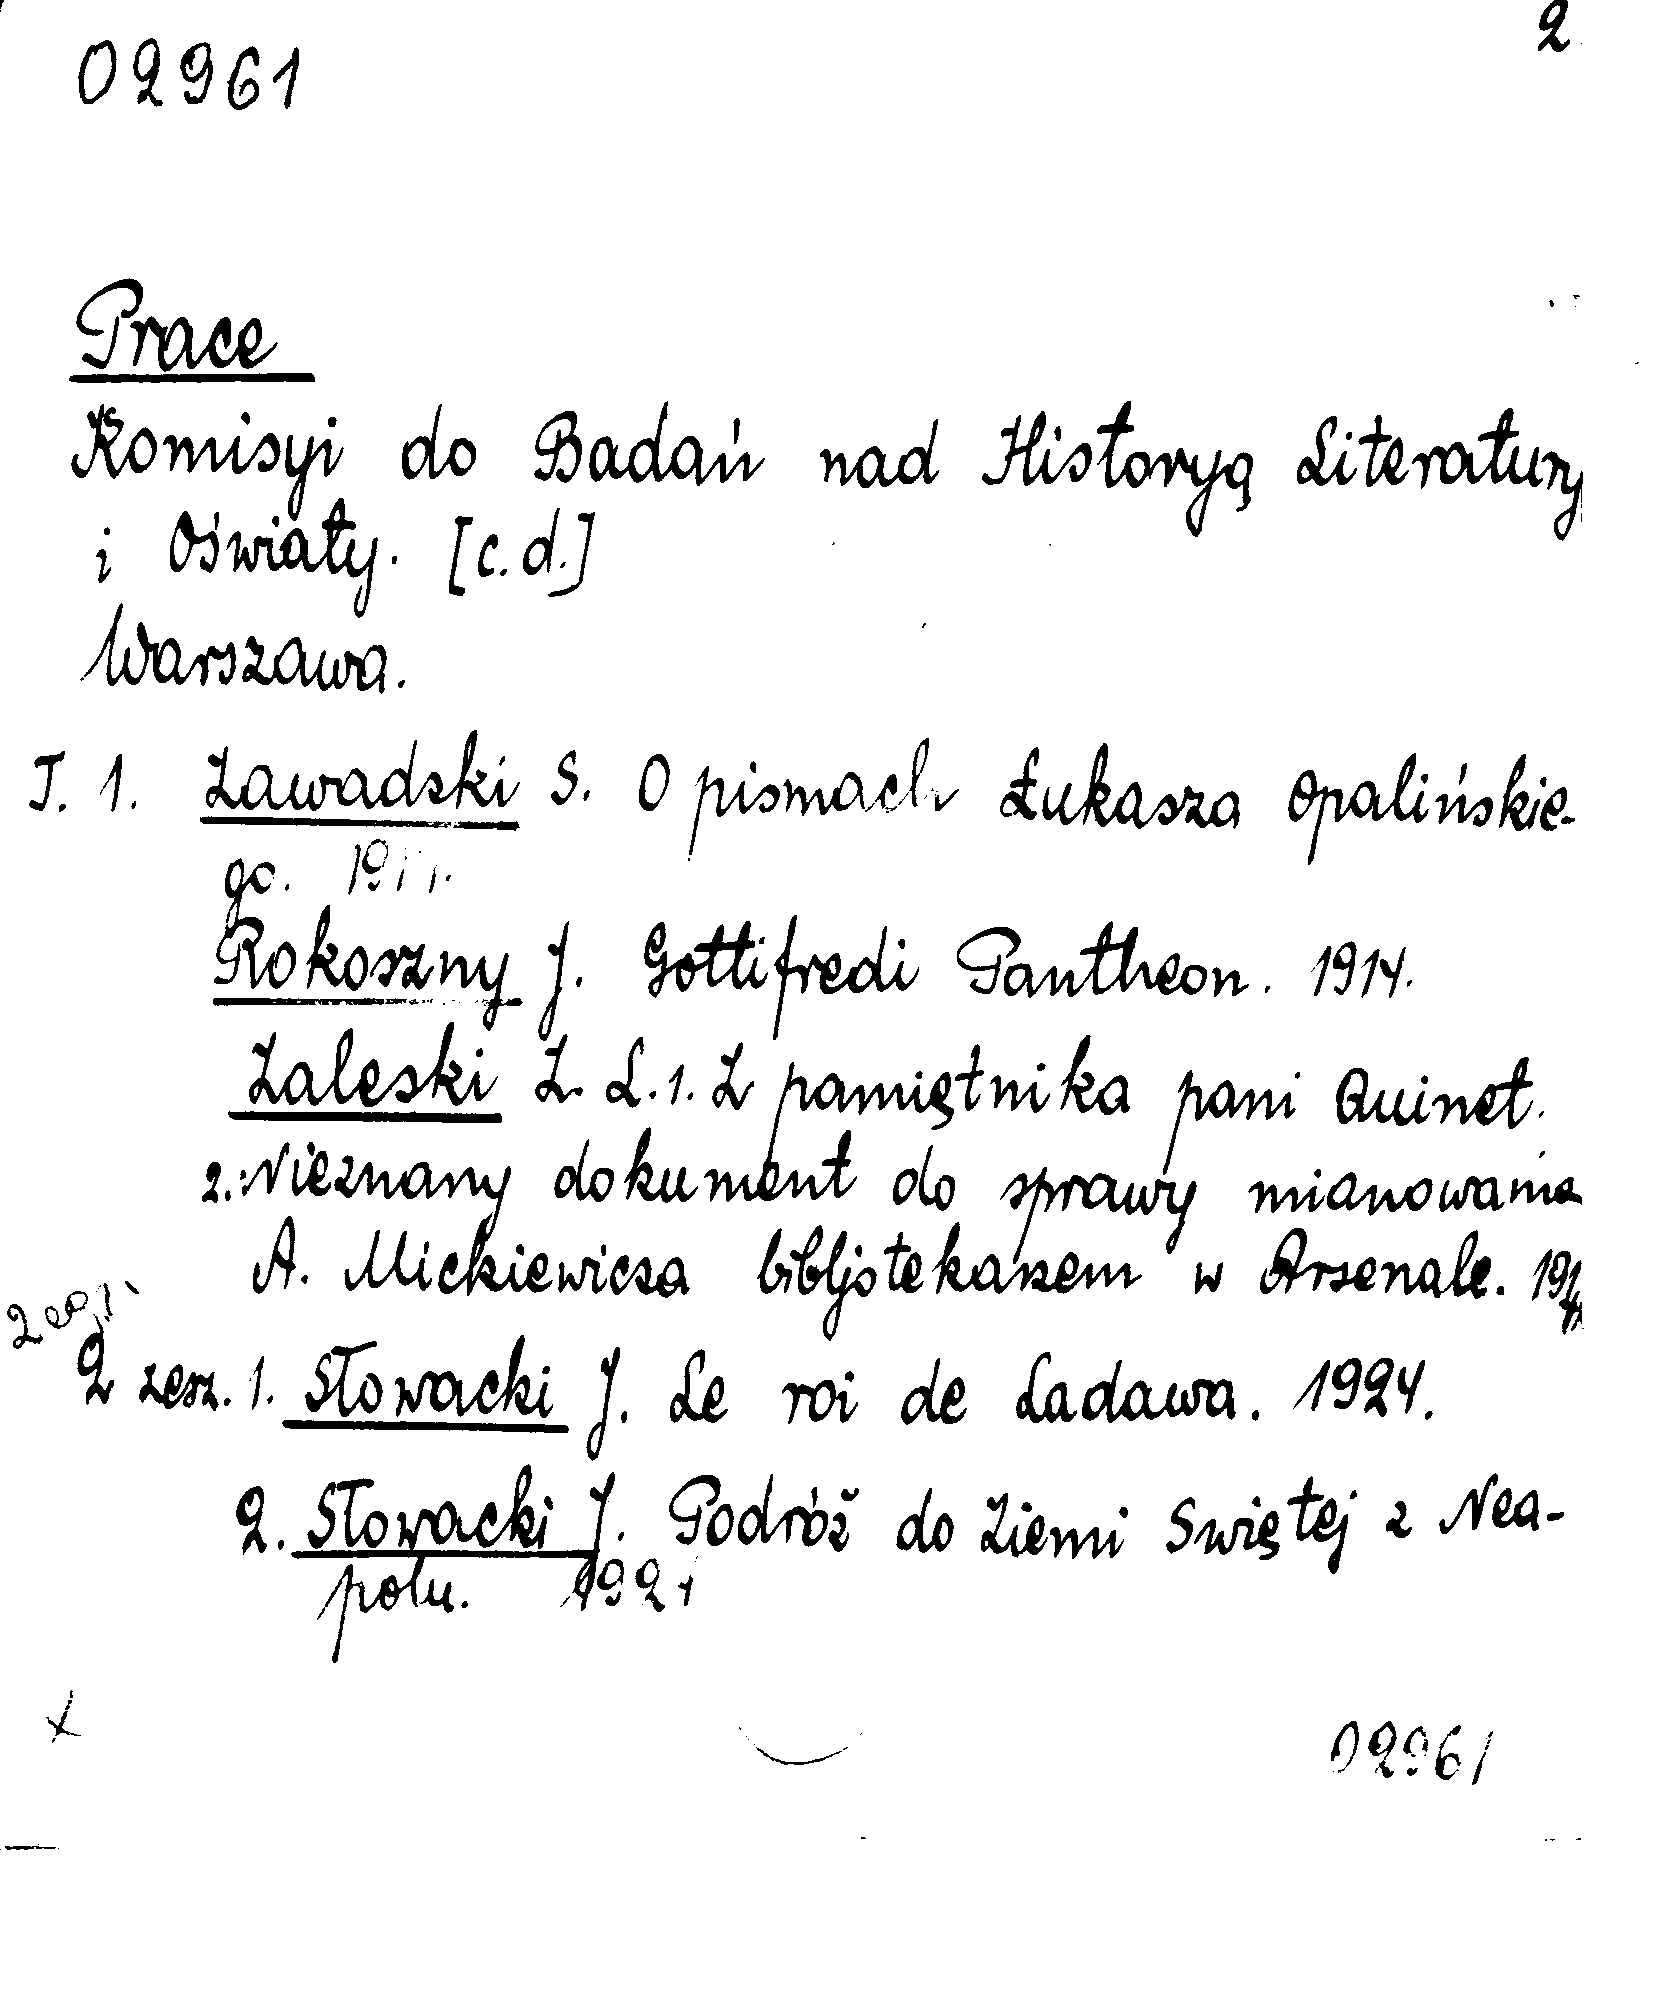 02961
2
Prace
Komisyi do Badań nad Historyą Literatury
i Oświaty. [c.d.]
Warszawa.
T. 1. Zawadzki S. O pismach Łukasza Opalińskie-
go.
Rokoszny J. Gottifredi Pantheon. 1914.
Zaleski Z. L. 1. Z pamiętnika pani Quinet.
2. Nieznany dokument do sprawy mianowania
A. Mickiewicza bibljotekarzem w Arsenale. 1914
2 egz.
2 zesz. 1. Słowacki J. Le roi de Ladawa. 1924.
2. Słowacki J. Podróż do Ziemi Swiętej z Nea-
polu.
02961